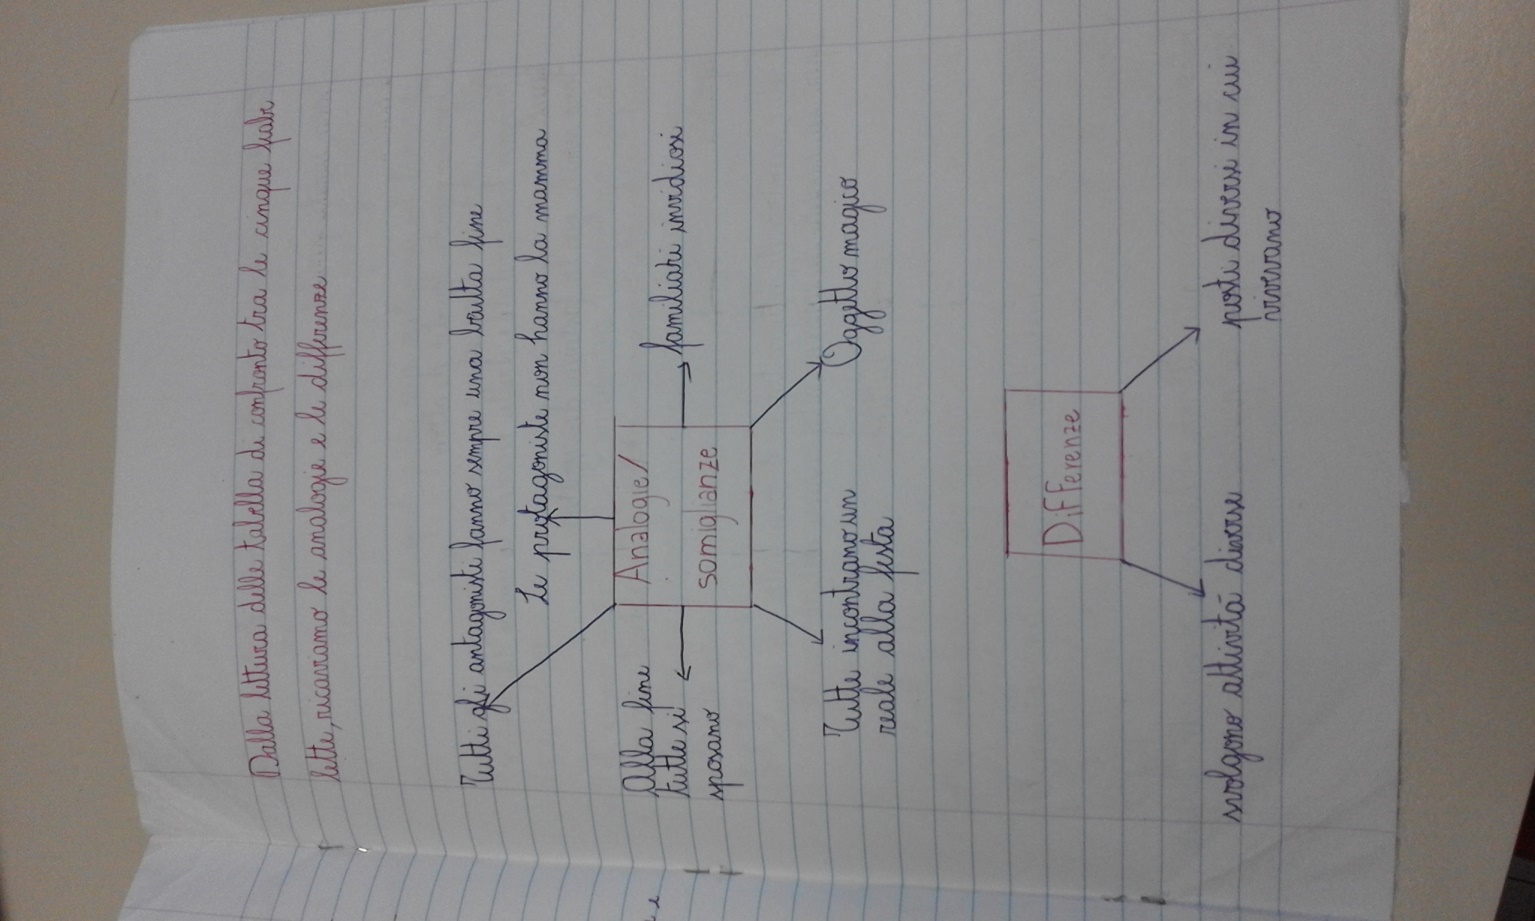 Dalla lettura delle tabella di confronto tra le cinque fiabe
lette, ricaviamo le analogie e le differenze
Tutti gli antagonisti fanno sempre una brutta fine
Le protagoniste non hanno la mamma
Alla fine
tutte si
sposano
Analogie/
somiglianze
familiari invidiosi
Tutte incontrano un
reale alla festa
Oggetto magico
Differenze
svolgono attività diverse
posti diversi in cui
vivevano